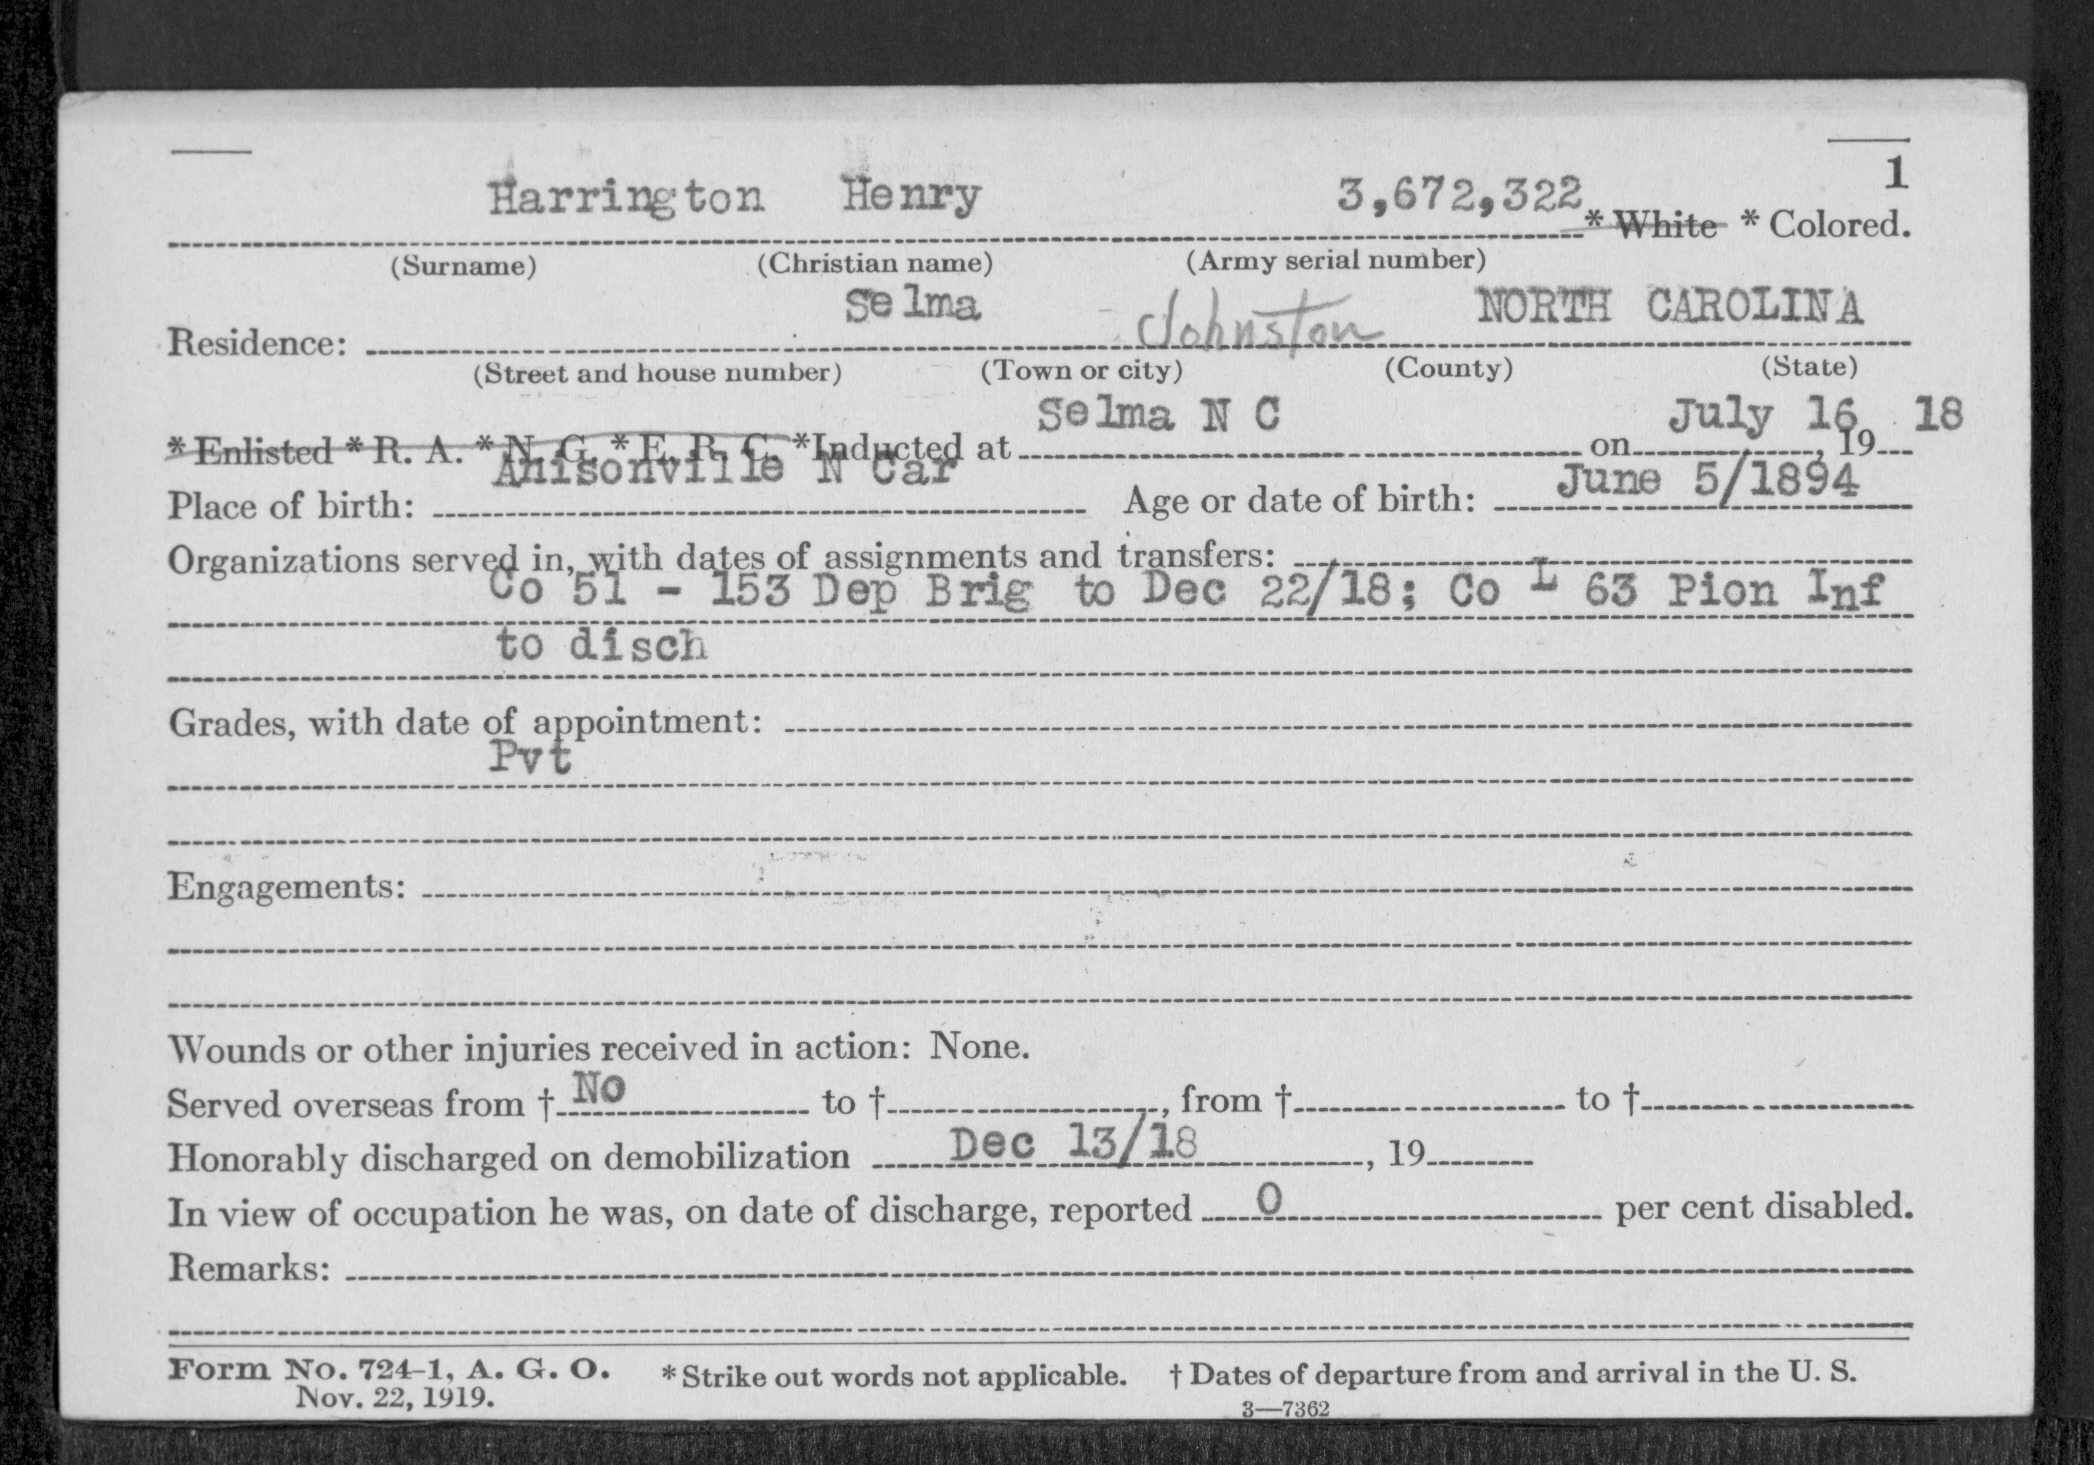 1
Harrington Henry 3,672,322 * White * Colored.
(Surname) (Christian name) (Army serial number)
Selma Johnston NORTH CAROLINA
Residence:
(Street and house number) (Town or city) (County) (State)
Selma N C July 16, 18
* Enlisted * R. A. * N. G. * E. R. C. *Inducted at on , 19
Anisonville N Car June 5/1894
Place of birth: Age or date of birth:
Organizations served in, with dates of assignments and transfers:
Co 51 - 153 Dep Brig to Dec 22/18; Co L 63 Pion Inf
to disch
Grades, with date of appointment:
Pvt
Engagements:
Wounds or other injuries received in action: None.
Served overseas from † No to † , from † to †
Honorably discharged on demobilization Dec 13/18 , 19
In view of occupation he was, on date of discharge, reported 0 per cent disabled.
Remarks:
Form No. 724-1, A. G. O. * Strike out words not applicable. † Dates of departure from and arrival in the U. S.
Nov. 22, 1919.
3—7362